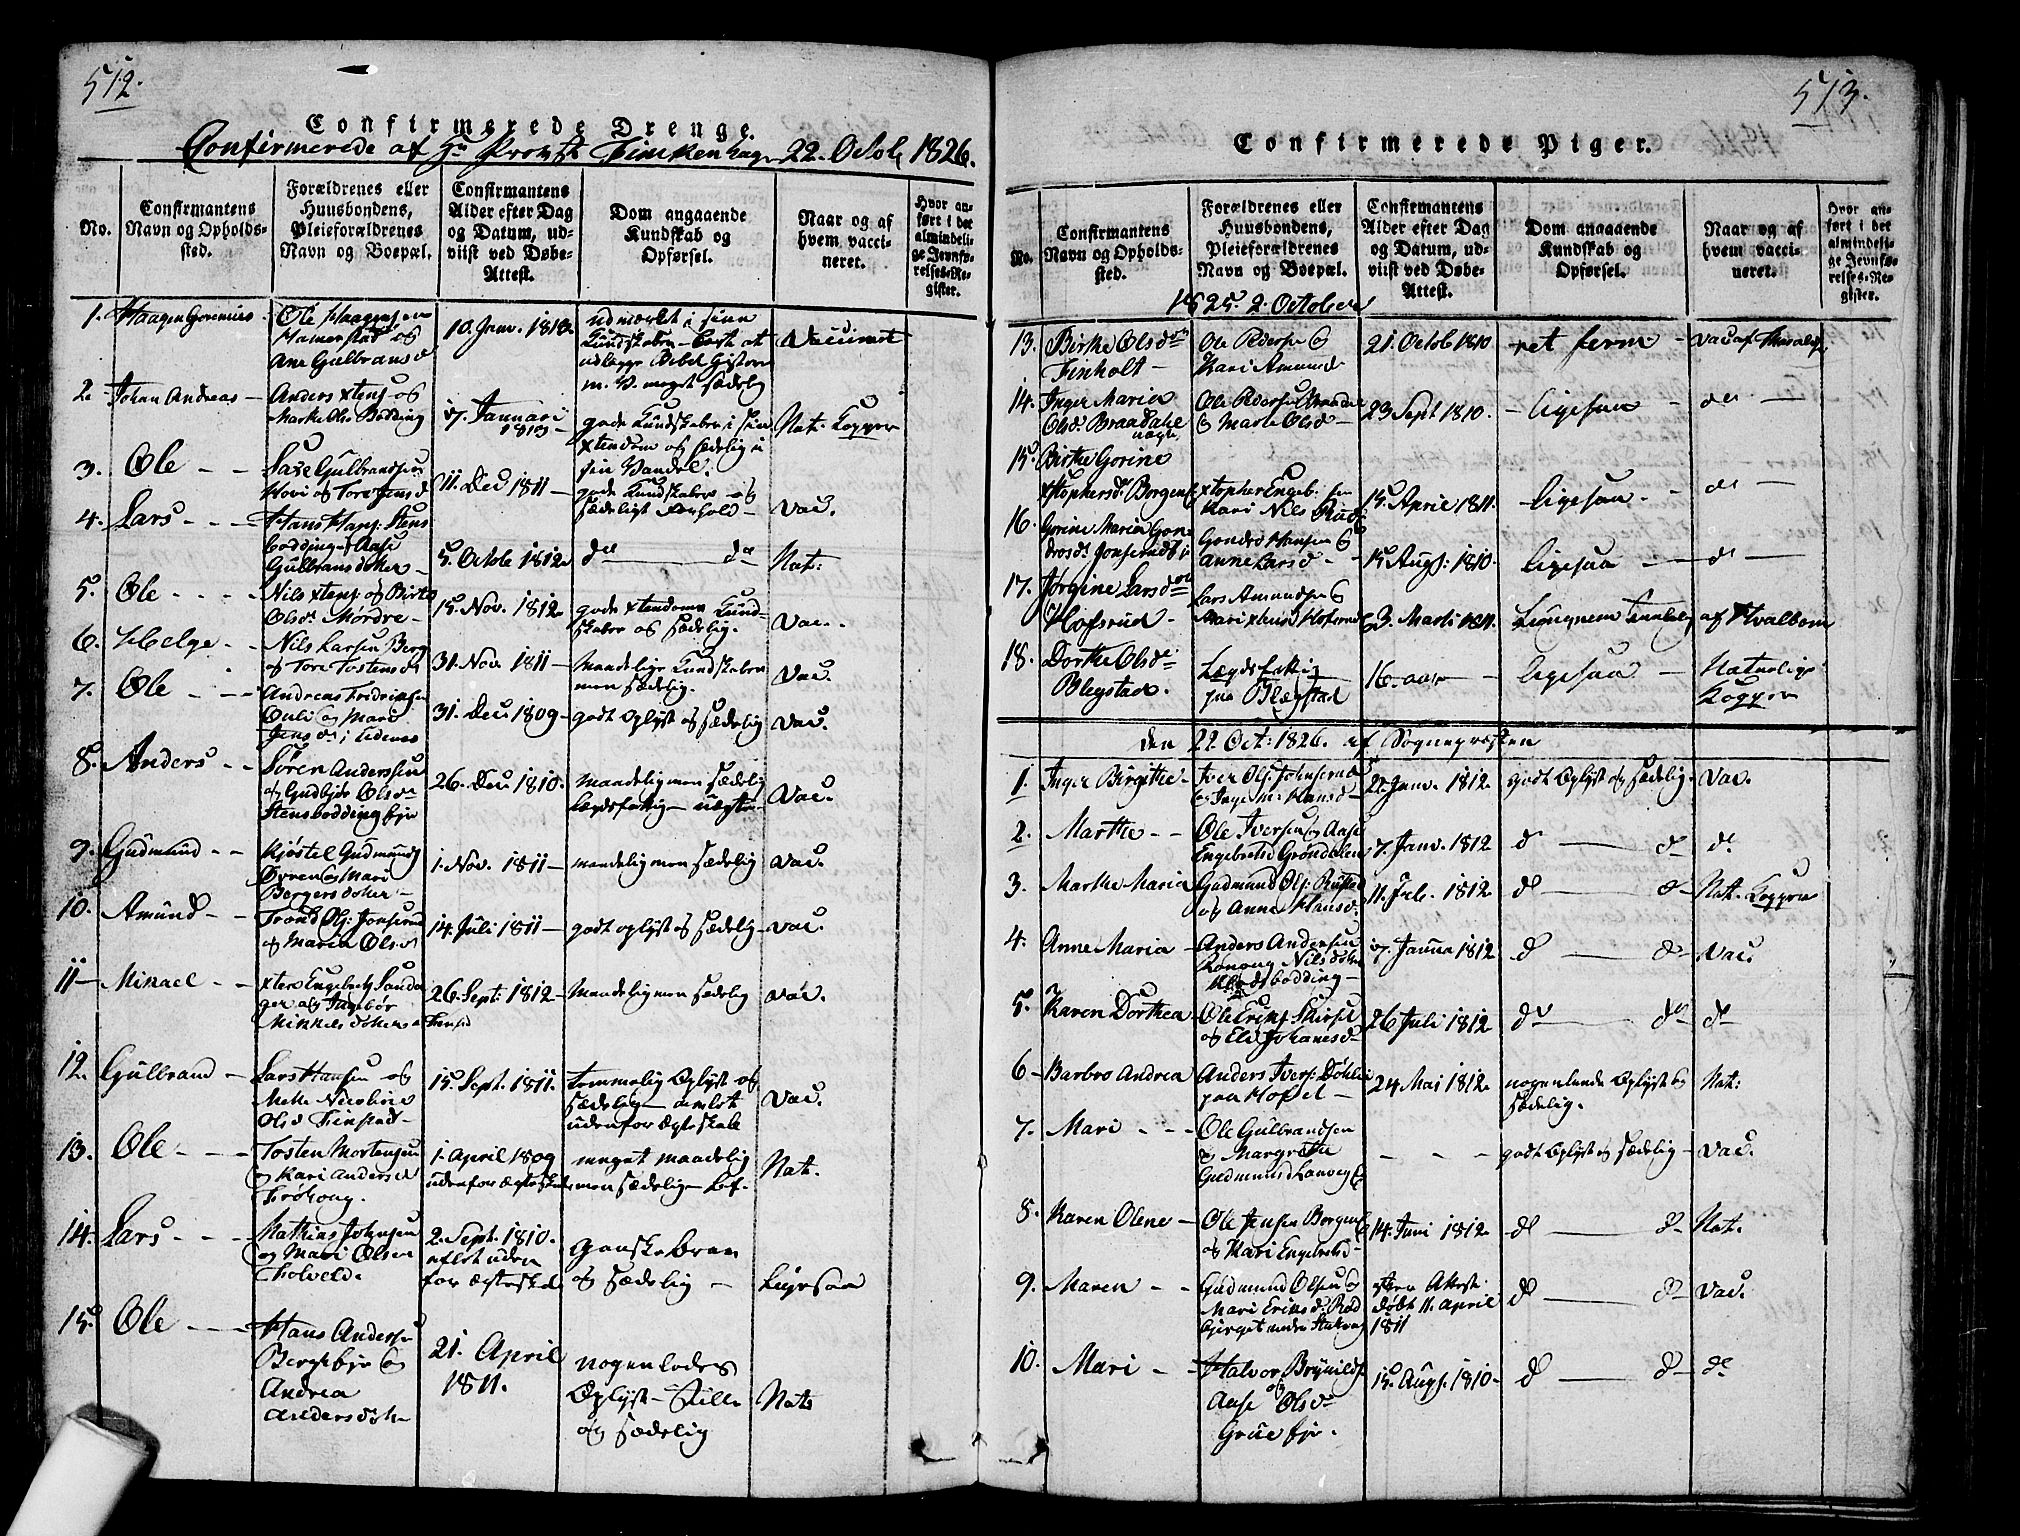 512.
Confirmerede Drenge.
Confirmerede af Hr Provst Finckenhagen 22. Octob 1826.
No.
Confirmantens Navn og Opholdssted.
Forældrenes eller Huusbondens, Pleieforældrenes Navn og Boepæl.
Confirmantens Alder efter Dag og Datum, udviist ved Døbe-Attest.
Dom angaaende Kundskab og Opførsel.
Naar og af hvem vaccineret.
Hvor anført i det almindelige Jevnførelses-Register.
1. Haagen
Ole Haagensen
Ane Gulbransd
10. Janv. 1812
udmærket i sine
Kundskaber
m. V. meget sædelig
Vaccineret
2. Johan Andreas
Anders xtens og
Marthe Ols Bødding
7. Januari
gode Kundskaber i sin
xtendom og sædelig i
sin Vandel.
Nat: Kopper
3. Ole
Gulbrandsen
Hovi og Tore Jensd
11. Dec 1811
gode Kundskaber og
sædeligt Forhold
Vac.
4. Lars
Hans Hans: Stens
bodding og Aase
Gulbransdotter
5. Octob 1812
do do
Nat:
5. Ole
Nils xtens og Birte
Olsd. Mørdre
15. Nov. 1812
gode xtendoms Kund-
skaber og sædelig.
Vac.
6. Helge
Nils Larsen Berg
og Tore Tostensd
31. Nov. 1811
Maadelige Kundskaber
men sædelig.
Vac.
7. Ole
Andreas Fredriksen
og Mari
Jensd.
31. Dec 1809
godt oplyst og sædelig
Vac.
8. Anders
Søren Anderssen
og Gudbjør Olsd
Stensboddingeje
26. Dec 1810.
maadelig men sædelig
Lægdsfattig uægte
Vac.
9. Gudmund
Kjøstel Gudmunds
Øvren og Mari
Bergersdotter
1. Nov. 1811
maadelig men sædelig
Vac.
10. Amund
Trond Ols: Jonsrud
og Maria Olsd
14. Juli 1811
godt oplyst og sædelig
Vac.
11 Mikael
xten Engebrets Sanda-
ger og Ingebør
Mikkelsdotter
26. Sept: 1812
Maadelig men sædelig
Vac.
12. Gulbrand
Lars Hansen og
Mette Nicoline
Olsd Finstad
15. Sept. 1811.
temmelig oplyst og
sædelig avlet
udenfor Ægteskab
Vac.
13. Ole
Tosten Mortensen
og Kari Andersd
1. April 1809
udenfor ægteskab
meget maadelig
men sædelig
Nat.
14. Lars
Mathias Johnsen
og Mari Olsen
2. Sept. 1810.
avlet uden
for ægteskab
Ganske brav
og sædelig
Ligesaa
15. Ole
Hans Anderssen
og
Andrea
Andersdotter
21. April
1811.
nogenledes
oplyst - stille
og sædelig
Nat.
513.
Confirmerede Piger.
No.
Confirmantens Navn og Opholdssted.
Forældrenes eller Huusbondens, Pleieforældrenes Navn og Boepæl.
Confirmantens Alder efter Dag og Datum, udviist ved Døbe-Attest.
Dom angaaende Kundskab og Opførsel.
Naar og af hvem vaccineret.
Hvor anført i det almindelige Jevnførelses-Register.
1825. 2. October
13. Birthe Olsd
Finholt
Ole Pedersen og
Kari Amunds
21. Octob 1810
ret ferm
Vac af
14. Inger Maria
Olsd. Braadalie
Ole Pedersen
og Marte Olsd
23 Sept 1810.
ligesaa
do
15. Birthe Gorine
xtophersd. Borgen
xtopher Engeb:sen
Kari Nils
15. April 1811.
ligesaa
do
16. Gorine Maria
Hansen og
Anne Larsd
15 Aug: 1810.
ligesaa
do
17. Jørgine Larsd
Hofsrud
Lars Amundsen og
3. Marti 1811
af Hvalbom
18. Dorthe Olsd
Blegstad.
Lægdsfattig
paa Blegstad
16. aar
ligesaa
Naturlige
Kopper
den 22 Oct: 1826. af Sognepræsten
1. Inger Birgithe
Iver Ols: Johnsrud
og Inge m. Hansd
Janv. 1812
godt oplyst og sædelig.
Vac.
2. Marthe
Ole Iversen og Aase
Engebretsd Grøndalen
7. Janv. 1812
d d
d.
3. Marthe Maria
Gudmund Ols: Rustad
og Anne Hansd.
11. Feb. 1812
d d
Nat. Kopper
4. Anne Maria
Anders Andersen
Ronoug Nilsdotter
7. Janua 1812
d d
Vac.
5. Karen Dorthea
Ole Eriks
og Eli Johanesd
26 Juli 1812
do do
do
6 Barbro Andrea
Anders Ivers: Døhlie
paa Hofsel
24 Mai 1812
nogenlunde oplyst og
sædelig.
Nat:
7. Mari
Ole Gulbrandsen
og Margrethe
godt oplyst og sædelig
Vac.
8. Karen Olene
Ole Jensen Borgen
og Mari Engebretsd
14. Juni 1812
d d
Nat.
9. Maren
Gudmund Olsen og
Mari Eriksd.
Attest
født 11. April
1811
d d
Vac.
10. Mari
Halvor Brynilds
og
Aase Olsd
15. Aug. 1810
d d
do